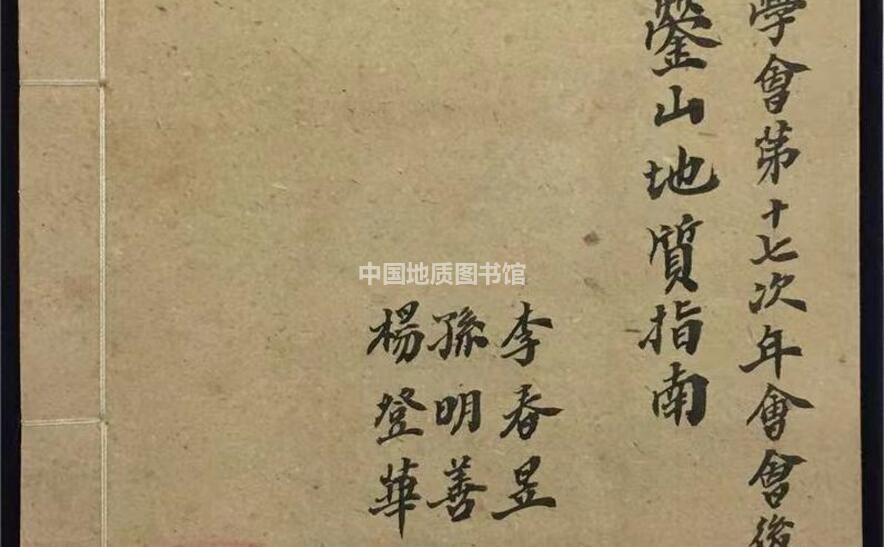 學會第十七次年會會後
鎣山地質指南
李春昱
孫明善
楊登華
中国地质图书馆